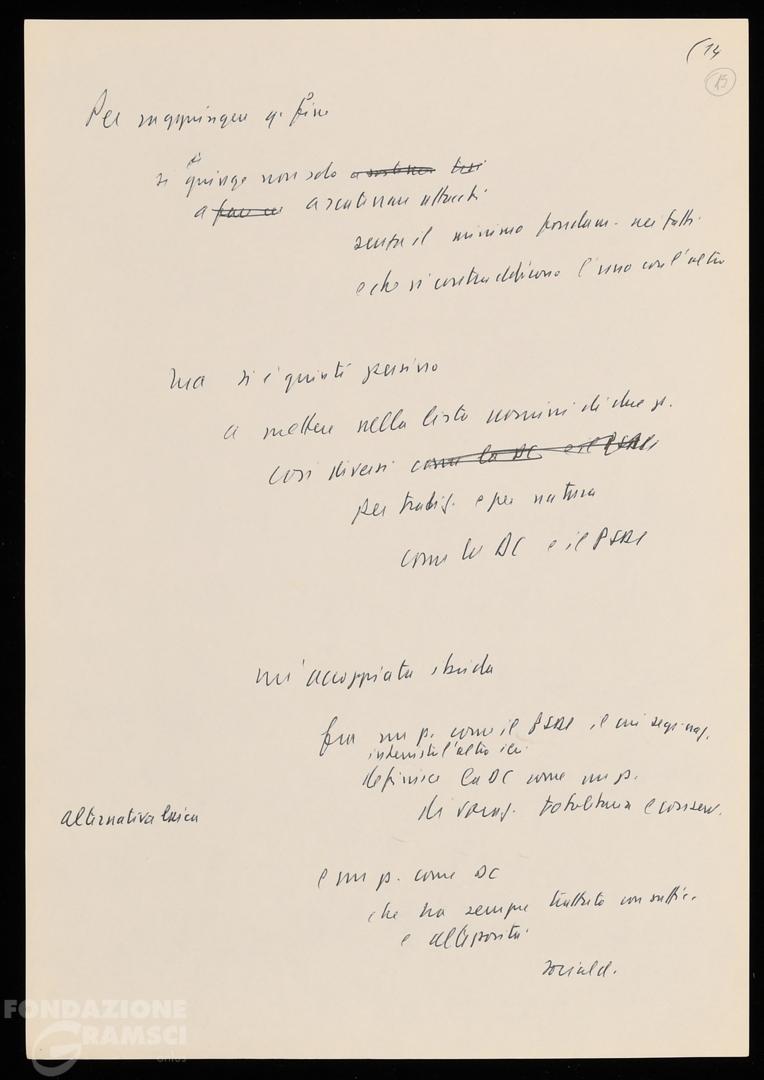 (14
15
Per raggiungere q. fine
si è
spinge non solo a sostener tesi
a fare a scatenare attacchi
senza il minimo fondam. nei fatti
e che si contraddicono l'uno con l'altro
ma si è spinti persino
a mettere nella lista uomini di due p.
così diversi come la DC e il PSDI
per tradiz. e per natura
come la DC e il PSDI
un'accoppiata ibrida
fra un p. come il PSDI il cui segr. naz.
intervist. l'altro ieri
definisce la DC come un p.
di vocaz. totalitaria e conserv.
alternativa laica
e un p. come DC
che ha sempre trattato con suffic.
e alterosità
sociald.
FONDAZIONE
GRAMSCI
onlus